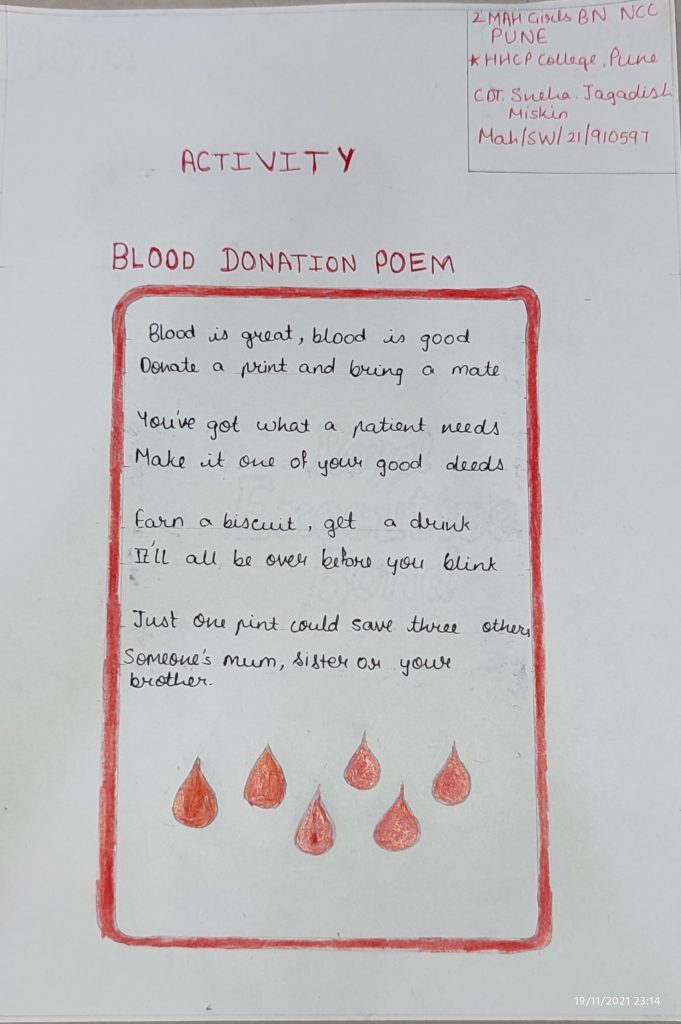 2 MAH Girls BN NCC
PUNE
* HHCP College, Pune
CDT. Sneha. Jagadish
Miskin
Mah/SW/21/910597
ACTIVITY
BLOOD DONATION POEM
Blood is great, blood is good
Donate a print and bring a mate
You've got what a patient needs
Make it one of your good deeds
Earn a biscuit, get a drink
It'll all be over before you blink
Just one pint could save three others
Someone's mum, sister or your
brother.
19/11/2021 23:14